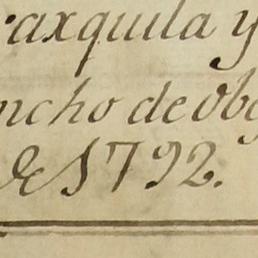 raxquila y
ncho de obg
de 1792.